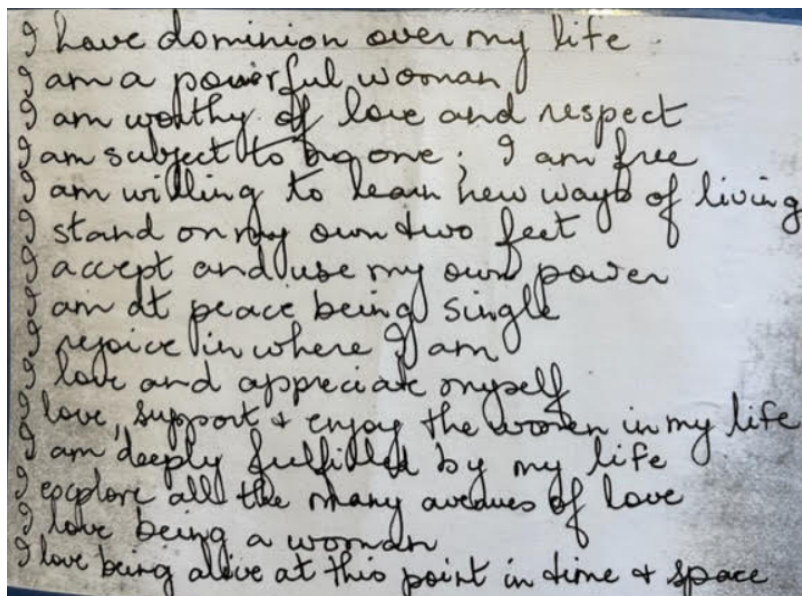 I have dominion over my life.
I am a powerful woman
I am worthy of love and respect
I am subject to no one; I am free
I am willing to learn new ways of living
I stand on my own two feet
I accept and use my own power
I am at peace being single
I rejoice in where I am
I love and appreciate myself
I love, support + enjoy the women in my life
I am deeply fulfilled by my life
I explore all the many avenues of love
I love being a woman
I love being alive at this point in time + space